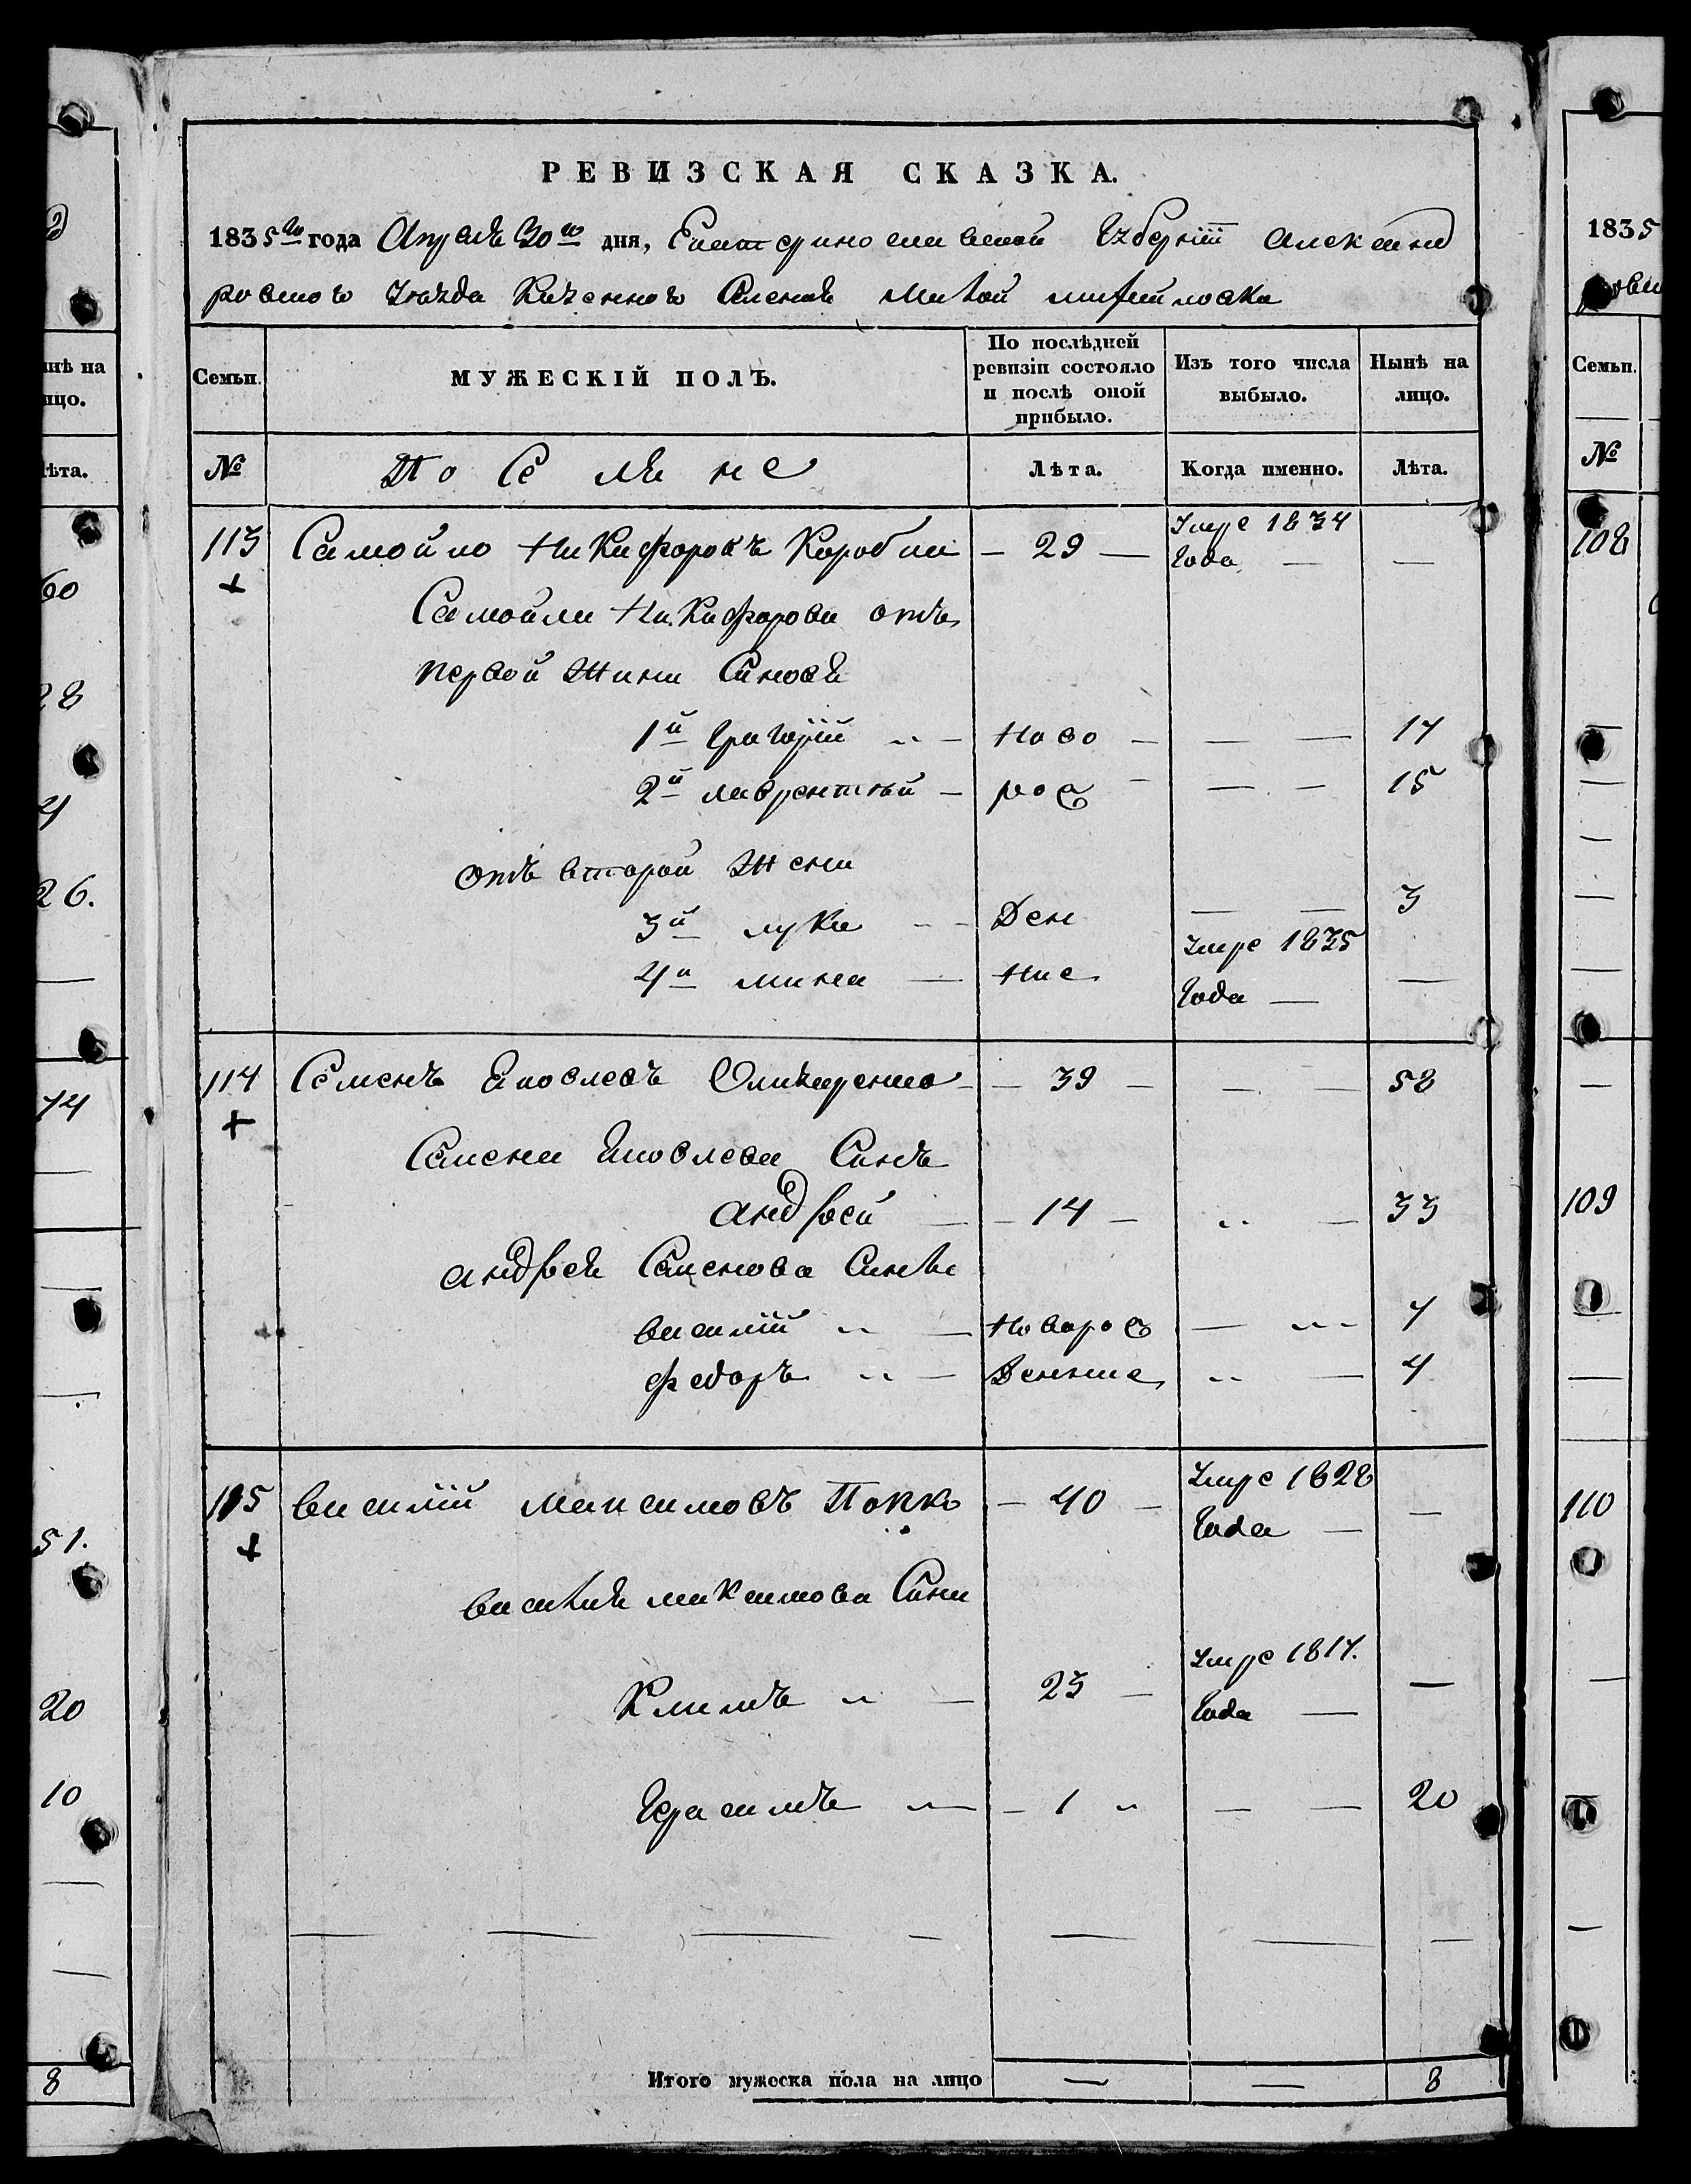 РЕВИЗСКАЯ СКАЗКА.
1835го года Апреля 30го дня, Екатеринославской Губерніи Александ
ровского Уезда Казенного Селенія Малой Михайловки
Семьи.
МУЖЕСКІЙ ПОЛЪ.
По послѣдней ревизіи состояло и послѣ оной прибыло.
Изъ того числа выбыло.
Нынѣ на лицо.
№
Поселяне
Лѣта.
Когда именно.
Лѣта.
113 Самойло Никифоровъ – 29 – Умре 1834
Года – –
Самойли Никифорова отъ
первой Жини Синовя
1й Григорій – Ново – – – 17
2й лаврентьій – рос – – 15
отъ второй Жени
3й лука – Ден – – 3
4й мина – ние Умре 1835
Года – –
114 Семенъ Яковлевъ – 39 – – – 58
Семена Яковлева Синъ
андрей – – 14 – – 33
андрея Семенова Сини
василій – Новорос – 7
федоръ – Денние – 4
115 василій максимовъ Попко – 40 – Умре 1828
Года – –
василия максимова Сини
Климъ – 23 – Умре 1817.
Года – –
Герасимъ – – 1 – – 20
Итого мужеска пола на лицо – – 8
нѣ на
ицо.
ѣта.
60
28
4
26.
74
51.
20
10
8
1835
Семьи.
№
108
109
110